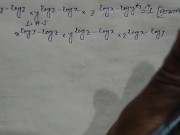 y-logz × y logz-logx × z logx-logy = 1
L.H.S
x logy-logz × y logz-logx × z logx-logy